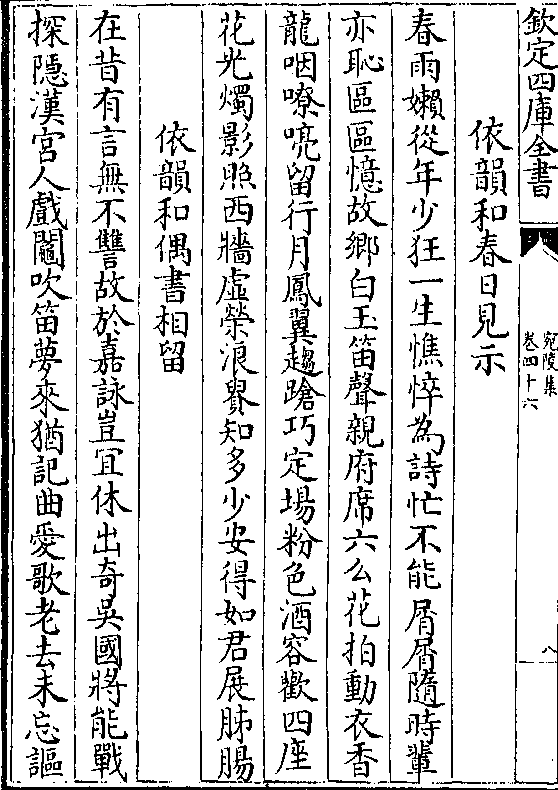 欽定四庫全書
宛陵集
卷四十六
八
依韻和春日見示
春雨嬾從年少狂一生憔悴為詩忙不能屑屑隨時輩
亦恥區區憶故鄉白玉笛聲親府席六么花拍動衣香
龍咽嘹喨留行月鳳翼趨蹌巧定場粉色酒容歡四座
花光燭影照西牆虛榮浪譽知多少安得如君展肺腸
依韻和偶書相留
在昔有言無不讐故於嘉詠豈宜休出奇吳國將能戰
探隱漢宮人戲鬮吹笛夢來猶記曲愛歌老去未忘謳